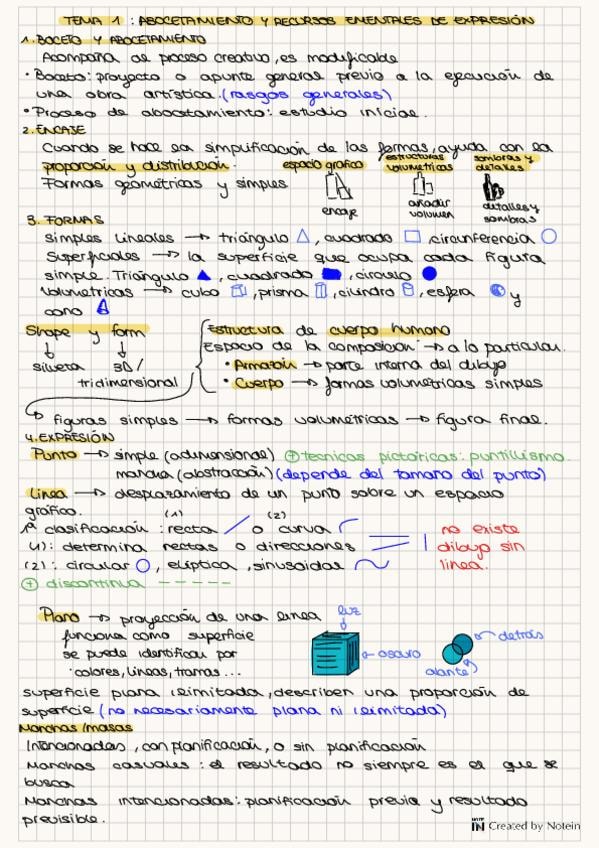 TEMA 1 : ABOCETAMIENTO Y RECURSOS EMENTALES DE EXPRESIÓN
1. BOCETO Y ABOCETAMIENTO
Acompaña al proceso creativo, es modificable
• Boceto: proyecto o apunte general previo a la ejecución de
una obra artística. (rasgos generales)
• Proceso de abocetamiento: estudio inicial.
2. ENCAJE
Cuando se hace la simplificación de las formas, ayuda con la
proporción y distribución.
espacio gráfico
estructuras volumétricas
sombras y detalles
Formas geométricas y simples
encaje
añadir volumen
detalles y sombras
3. FORMAS
simples lineales → triángulo, cuadrado, circunferencia
Superficiales → la superficie que ocupa cada figura
simple. Triángulo, cuadrado, círculo
Volumétricas → cubo, prisma, cilindro, esfera y
cono
Shape y form
silueta 3D/
tridimensional
Estructura de cuerpo humano
Espacio de la composición → a lo particular.
• Armazón → parte interna del dibujo
• Cuerpo → formas volumétricas simples
figuras simples → formas volumétricas → figura final.
4. EXPRESIÓN
Punto → simple (adimensional) + técnicas pictóricas: puntillismo
mancha (abstracción) (depende del tamaño del punto)
Línea → desplazamiento de un punto sobre un espacio
gráfico.
(1) (2)
1ª clasificación : recta o curva
(1): determina rectas o direcciones
(2): circular, elíptica, sinusoidas
no existe
dibujo sin
línea.
+ discontinua -----
Plano → proyección de una línea
funciona como superficie
se puede identificar por
colores, líneas, tramas...
luz
← oscuro
detrás
alante
superficie plana limitada, describen una proporción de
superficie (no necesariamente plana ni limitada)
Manchas/masas
Intencionadas, con planificación, o sin planificación
Manchas casuales : el resultado no siempre es el que se
busca
Manchas intencionadas: planificación previa y resultado
previsible.
Created by Notein